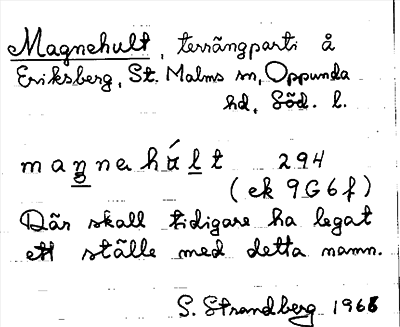 Magnehult, terrängparti å
Eriksberg, St. Malms sn, Oppunda
hd, Söd. l.
m a n̲ n e h ú l̲ t 294
(ek 9G6f)
Där skall tidigare ha legat
ett ställe med detta namn.
S. Strandberg 1968